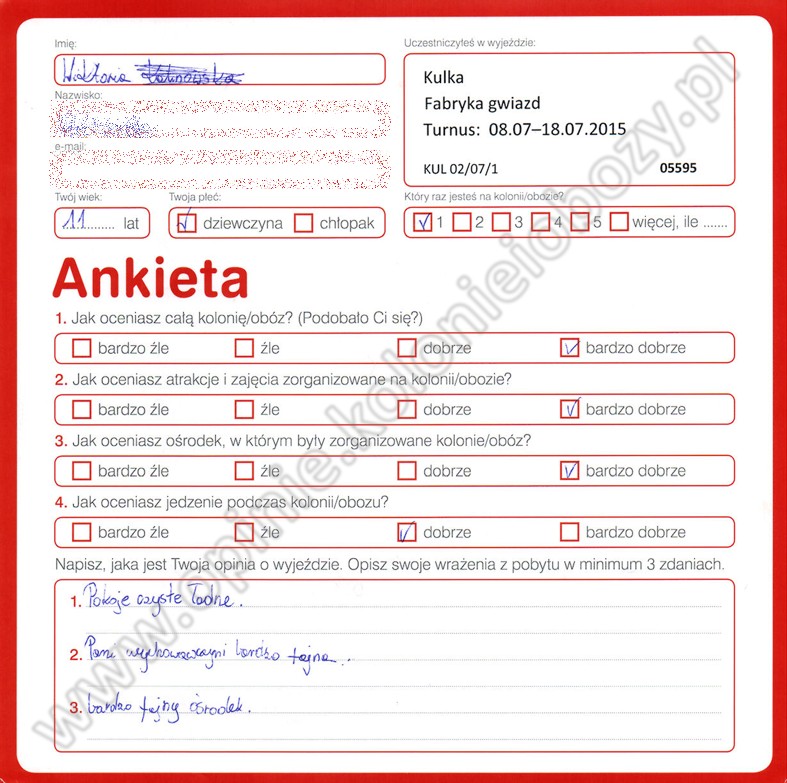 Imię:
Wiktoria
Nazwisko:
e-mail:
Twój wiek:
11 lat
Twoja płeć:
dziewczyna chłopak
Uczestniczyłeś w wyjeździe:
Kulka
Fabryka gwiazd
Turnus: 08.07–18.07.2015
KUL 02/07/1 05595
Który raz jesteś na kolonii/obozie?
1 2 3 4 5 więcej, ile .......
Ankieta
1. Jak oceniasz całą kolonię/obóz? (Podobało Ci się?)
bardzo źle źle dobrze bardzo dobrze
2. Jak oceniasz atrakcje i zajęcia zorganizowane na kolonii/obozie?
bardzo źle źle dobrze bardzo dobrze
3. Jak oceniasz ośrodek, w którym były zorganizowane kolonie/obóz?
bardzo źle źle dobrze bardzo dobrze
4. Jak oceniasz jedzenie podczas kolonii/obozu?
bardzo źle źle dobrze bardzo dobrze
Napisz, jaka jest Twoja opinia o wyjeździe. Opisz swoje wrażenia z pobytu w minimum 3 zdaniach.
1. Pokoje czyste ładne.
2. Pani wychowawczyni bardzo fajna.
3. bardzo fajny ośrodek.
www.opinie.kolonieiobozy.pl